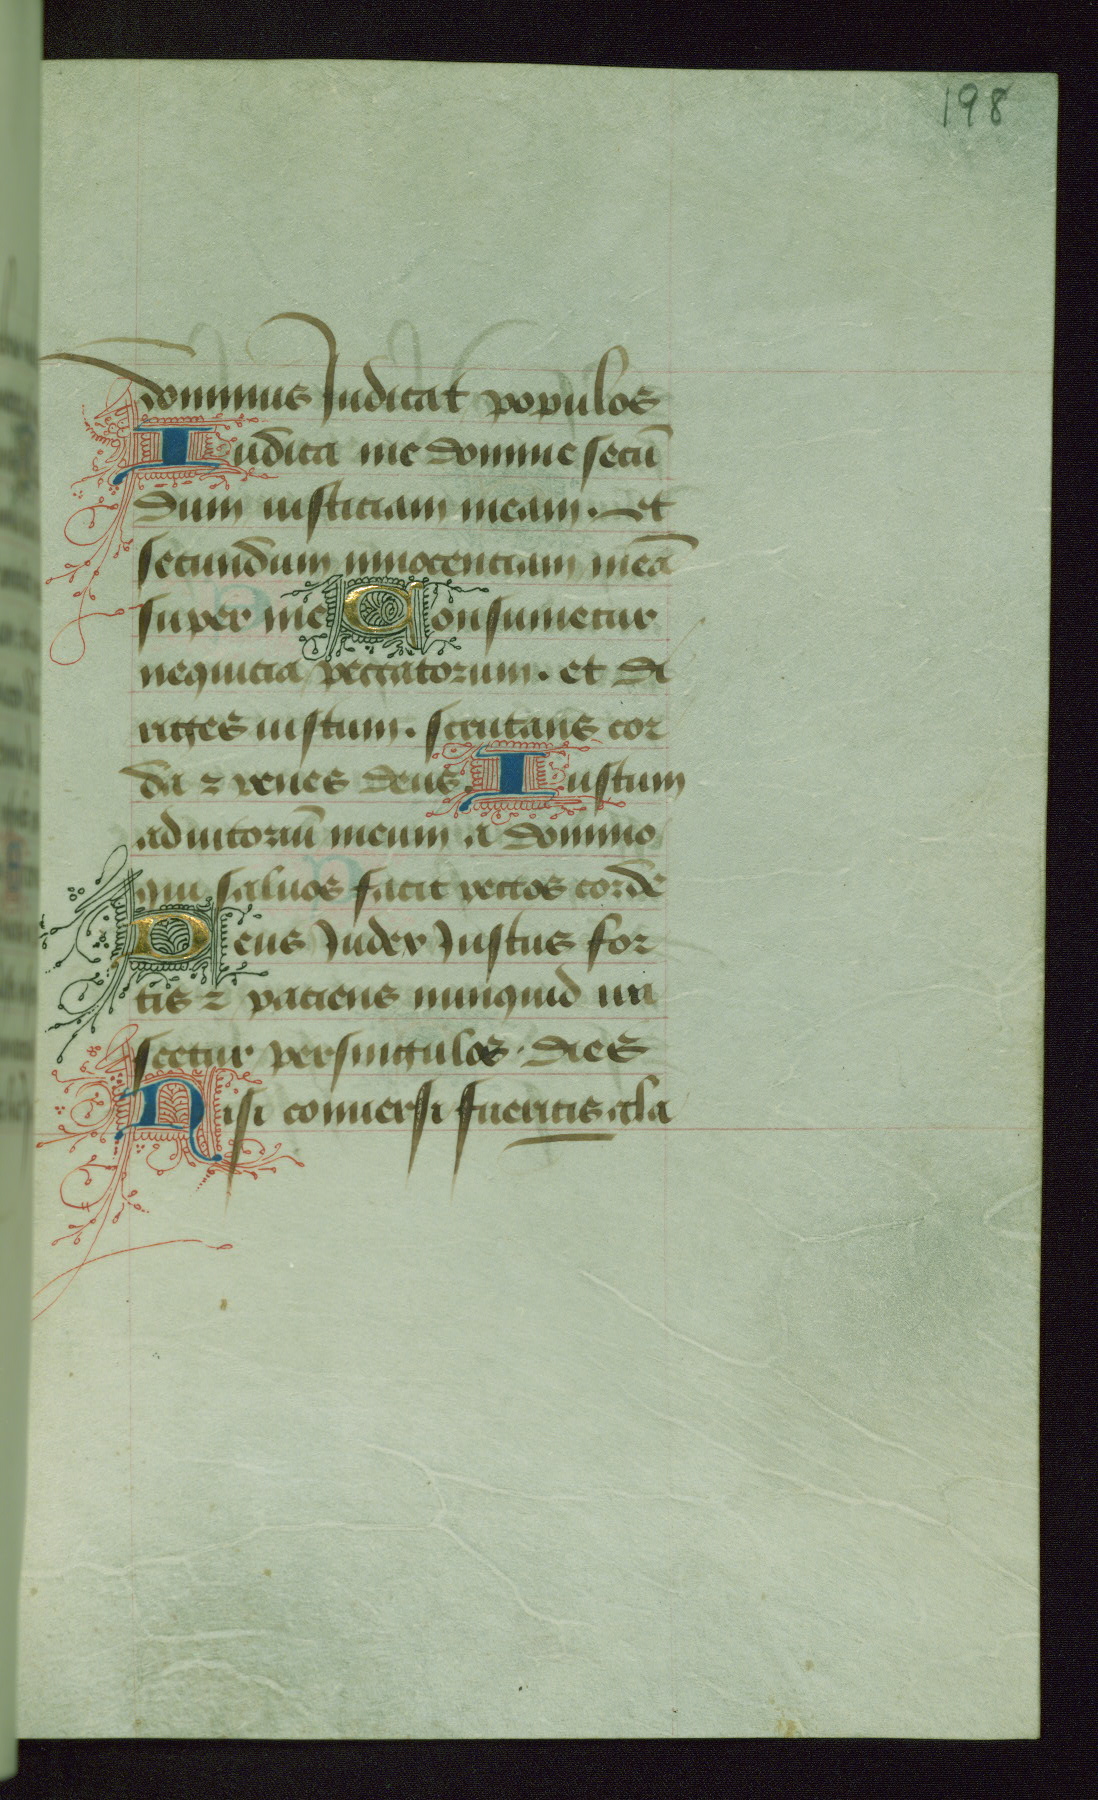 198
dominus Judicat populos
Iudica me domine secū
dum iusticiam meam. et
secundum innocenciam meā
super me Consumetur
nequicia peccatorum. et di
riges iustum. scrutans cor
da ⁊ renes deus. Iustum
adiutoriū meum a domino
qui saluos facit rectos corde
Deus Judex Justus for
tis ⁊ paciens nunquid ira
scetur persingulos. dies
Nisi conuersi fueritis gla